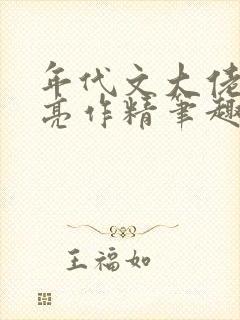 年代文大佬
亮作精笔趣
王福如